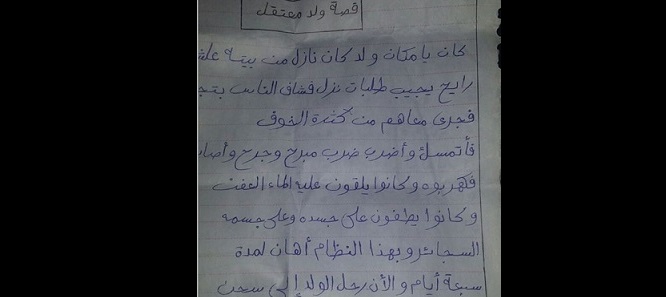 قصة ولد معتقل
كان يا مكان ولد كان نازل من بيته علشـ
رايح يجيب طلبات نزل فشاف الناس بتجـ
فجرى معاهم من كثرة الخوف
فأتمسك وأضرب ضرب مبرح وجرح وأصا
فكهربوه وكانوا يلقون عليه الماء العفن
وكانوا يطفون على جسده وعلى جسمه
السجائر وبهذا النظام أهان لمدة
سبعة أيام والأن رحل الولد إلى سجن